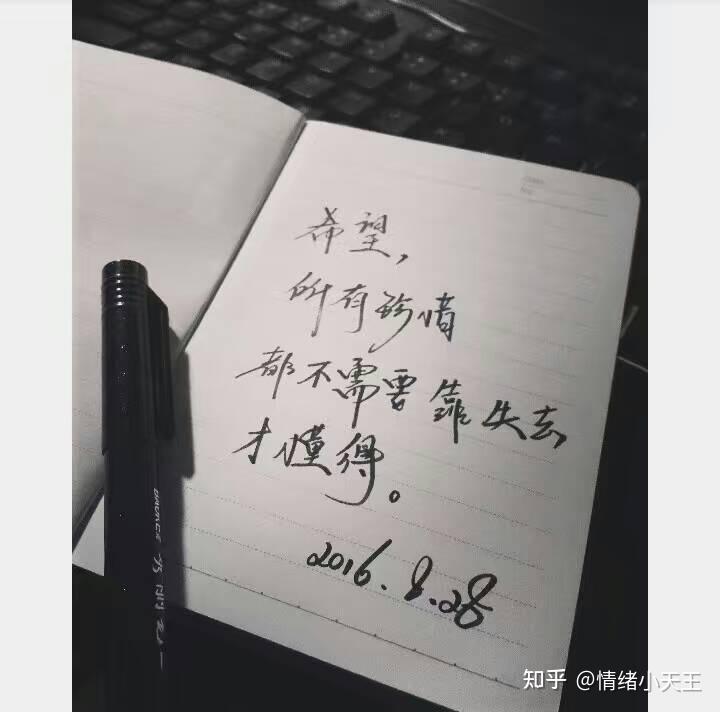 希望，
所有珍惜
都不需要靠失去
才懂得。
2016.8.28
知乎 @情绪小天王